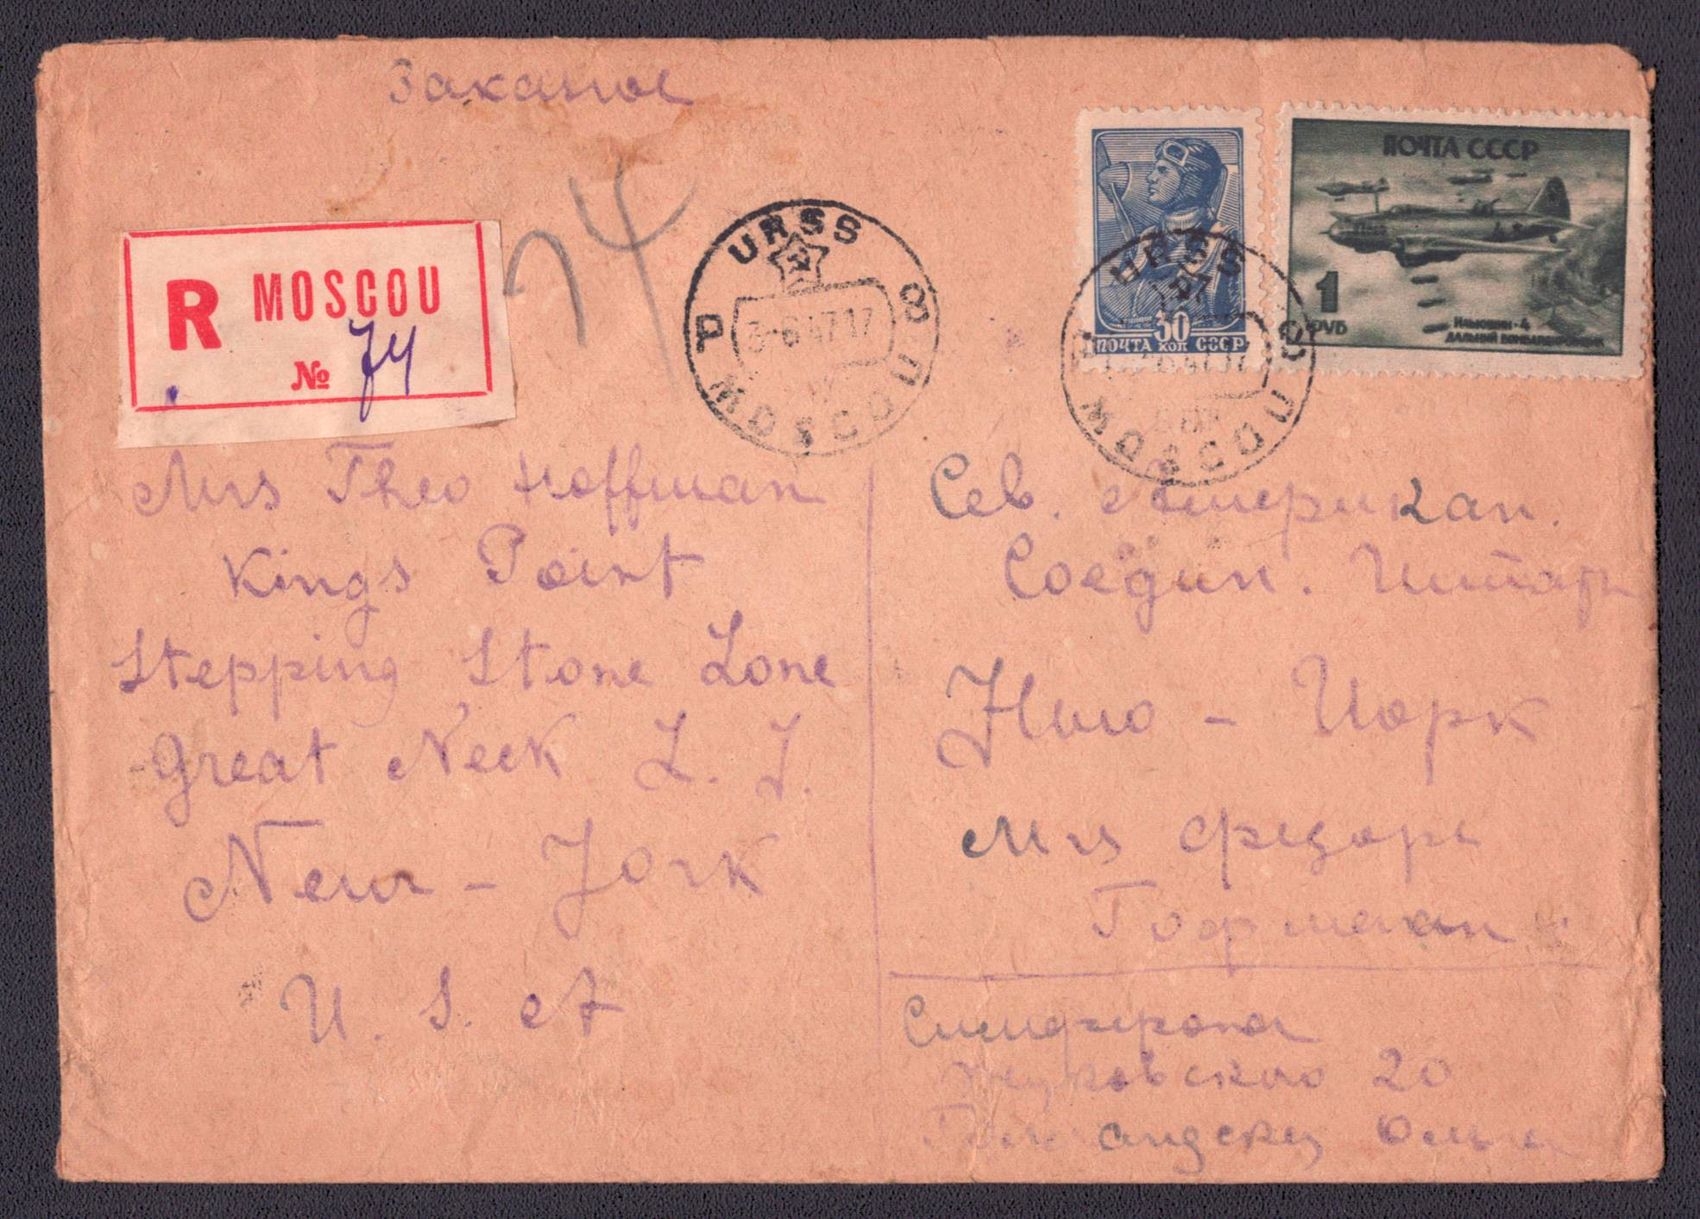 Заказное
R MOSCOU
№ 74
74
URSS
3-6 47 17
MOSCOU
30
ПОЧТА КОП СССР
ПОЧТА СССР
1
РУБ
ИЛЬЮШИН-4
ДАЛЬНИЙ БОМБАРДИРОВЩИК
URSS
MOSCOU
Mrs Theo Hoffman
Kings Point
Stepping Stone Lone
Great Neck L. I.
New-York
U. S. A
Сев. Американ.
Соедин. Штаты
Нью-Иорк
Гофман
Симферополь
Жуковского 20